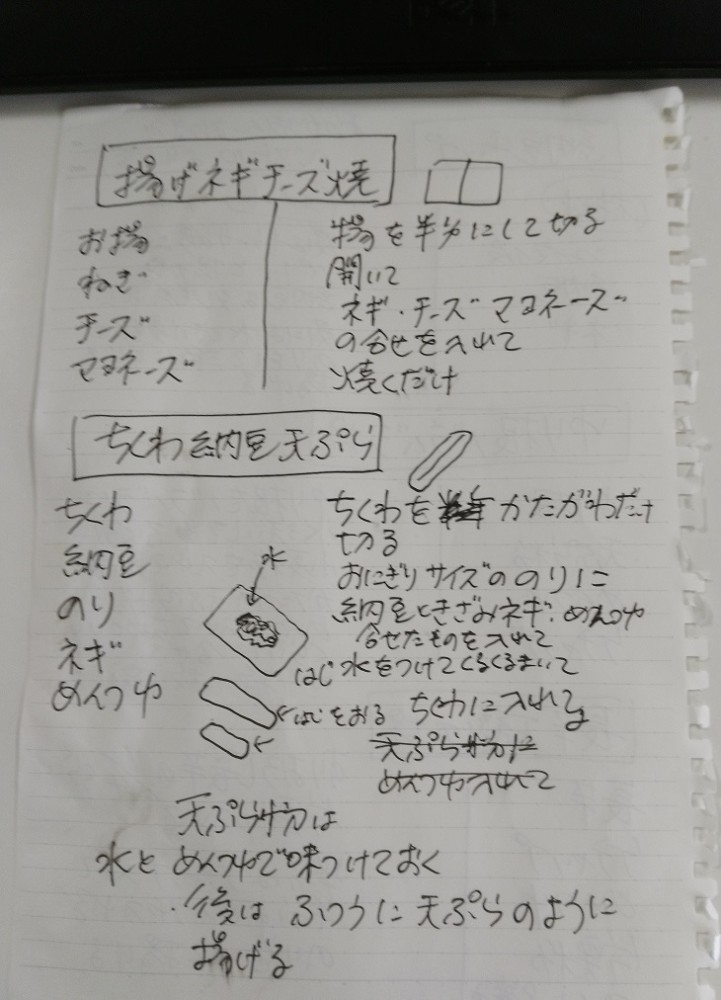 揚げネギチーズ焼
お揚
ねぎ
チーズ
マヨネーズ
揚を半分にして切る
開いて
ネギ・チーズマヨネーズ
の合せを入れて
焼くだけ
ちくわ納豆天ぷら
ちくわ
納豆
のり
ネギ
めんつゆ
ちくわを かたがわだけ
切る
おにぎりサイズののりに
納豆ときざみネギ.めんつゆ
合せたものを入れて
はじ水をつけてくるくるまいて
ちくわに入れる
水
はじをおる
天ぷら粉に
めんつゆ入れて
天ぷら粉は
水とめんつゆで味つけておく
・後はふつうに天ぷらのように
揚げる